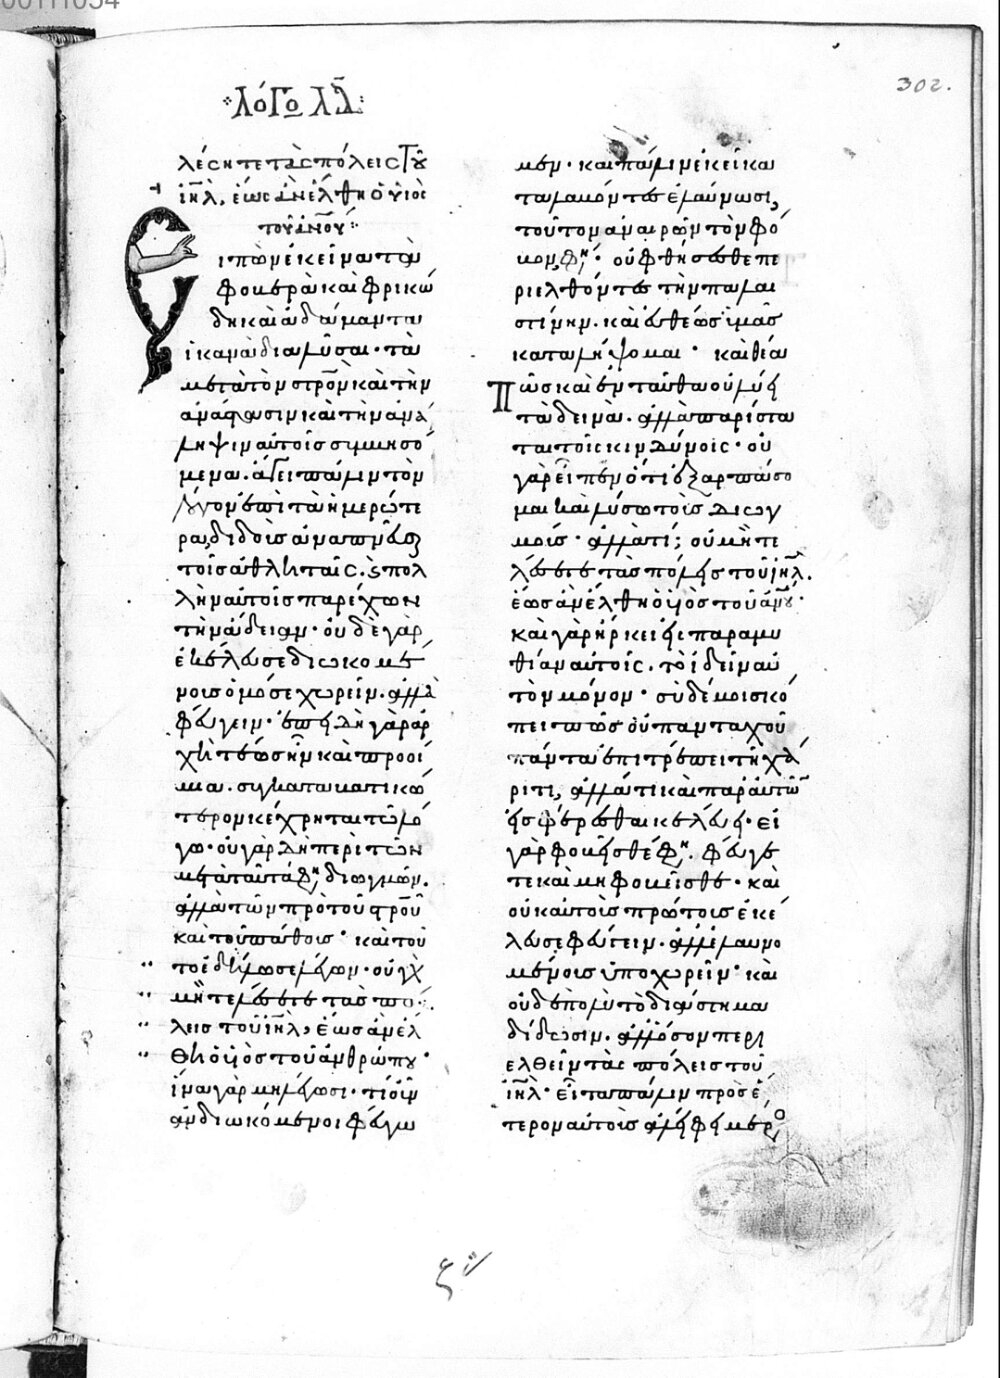 ·λόγο λδ̄:
302.
λέσητε τὰς πόλεις τοῦ
ιη̄λ, ἕως ἂν ἔλθη ὁ υἱὸς
τοῦ ἀνοῦ:
Ειπὼν ἐκεῖνα τὰ
φοβερὰ καὶ φρικώ
δη καὶ ἀδάμαντα
ἱκανὰ διαλῦσαι· τὰ
μετὰ τὸν στρο̄ν καὶ τὴν
ἀνάστασιν καὶ τὴν ἀνά
ληψιν αὐτοῖς συμβησό
μενα. ἄγει πάλιν τὸν
λόγον ἐπὶ τὰ ἡμερώτε
ρα, διδοὺς ἀναπνεῦσαι
τοῖς ἀθληταῖς. ϗ πολ
λὴν αὐτοῖς παρέχων
τὴν ἄδειαν· οὐδὲ γὰρ
ἐκέλευσε διωκομέ
νοις ὁμόσε χωρεῖν. ἀλλὰ
φεύγειν· ἐπειδὴ γὰρ ἀρ
χὴ τέως ἦν καὶ προοί
μια. συγκαταβατικω
τέρον κέχρηται τῶ λό
γω· οὐ γὰρ δὴ περὶ τῶν
μετὰ ταῦτά φη, διωγμῶν.
ἀλλὰ τῶν πρὸ τοῦ στρο̄ῦ
καὶ τοῦ πάθους· καὶ τοῦ
το ἐδήλωσε λέγων· οὐ
μὴ τελέσετε τὰς πό
λεις τοῦ ιη̄λ, ἕως ἂν ἔλ
θη ὁ υἱὸς τοῦ ἀνθρώπου·
ἵνα γὰρ μὴ λέγωσι· τί οὖν
ἂν διωκόμενοι φύγω
μεν· καὶ πάλιν ἐκεῖ κα
ταλαβόντες ἐλαύνωσι,
τοῦτον ἀναιρῶν τὸν φό
βον, φη· οὐ φθήσεσθε πε
ριελθόντες τὴν παλαι
στίνην. καὶ εὐθέως ὑμᾶς
καταλήψομαι· καὶ θέα
πῶς καὶ ἐνταῦθα οὐ λύει
τὰ δεινὰ. ἀλλὰ παρίστα
ται τοῖς κινδύνοις· οὐ
γὰρ εἶπεν ὅτι ἐξαρπάσο
μαι καὶ λύσω τοὺς διωγ
μούς· ἀλλὰ τί; οὐ μὴ τε
λέσετε τὰς πόλεις τοῦ ιη̄λ.
ἕως ἂν ἔλθη ὁ υἱὸς τοῦ ἀνου·
καὶ γὰρ ἤρκει εἰς παραμυ
θίαν αὐτοῖς. τὸ ἰδεῖν αὐ
τὸν μόνον· σὺ δέ μοι σκό
πει πῶς οὐ πανταχοῦ
πάντα ἐπιτρέπει τῆ χά
ριτι, ἀλλά τι καὶ παρ' αὐτῶν
εἰσφέρεσθαι κελεύει· εἰ
γὰρ φοβεῖσθέ φη. φεύγε
τε καὶ μὴ φοβεῖσθε· καὶ
οὐκ αὐτοὺς πρώτους ἐκέ
λευσε φεύγειν. ἀλλ' ἐλαυνο
μένους ὑποχωρεῖν· καὶ
οὐδὲ πολὺ τὸ διάστημα
δίδωσιν. ἀλλ' ὅσον περι
ελθεῖν τὰς πόλεις τοῦ
ιη̄λ· εἶτα πάλιν πρὸς ἕ
τερον αὐτοὺς ἀλείφει μέρο